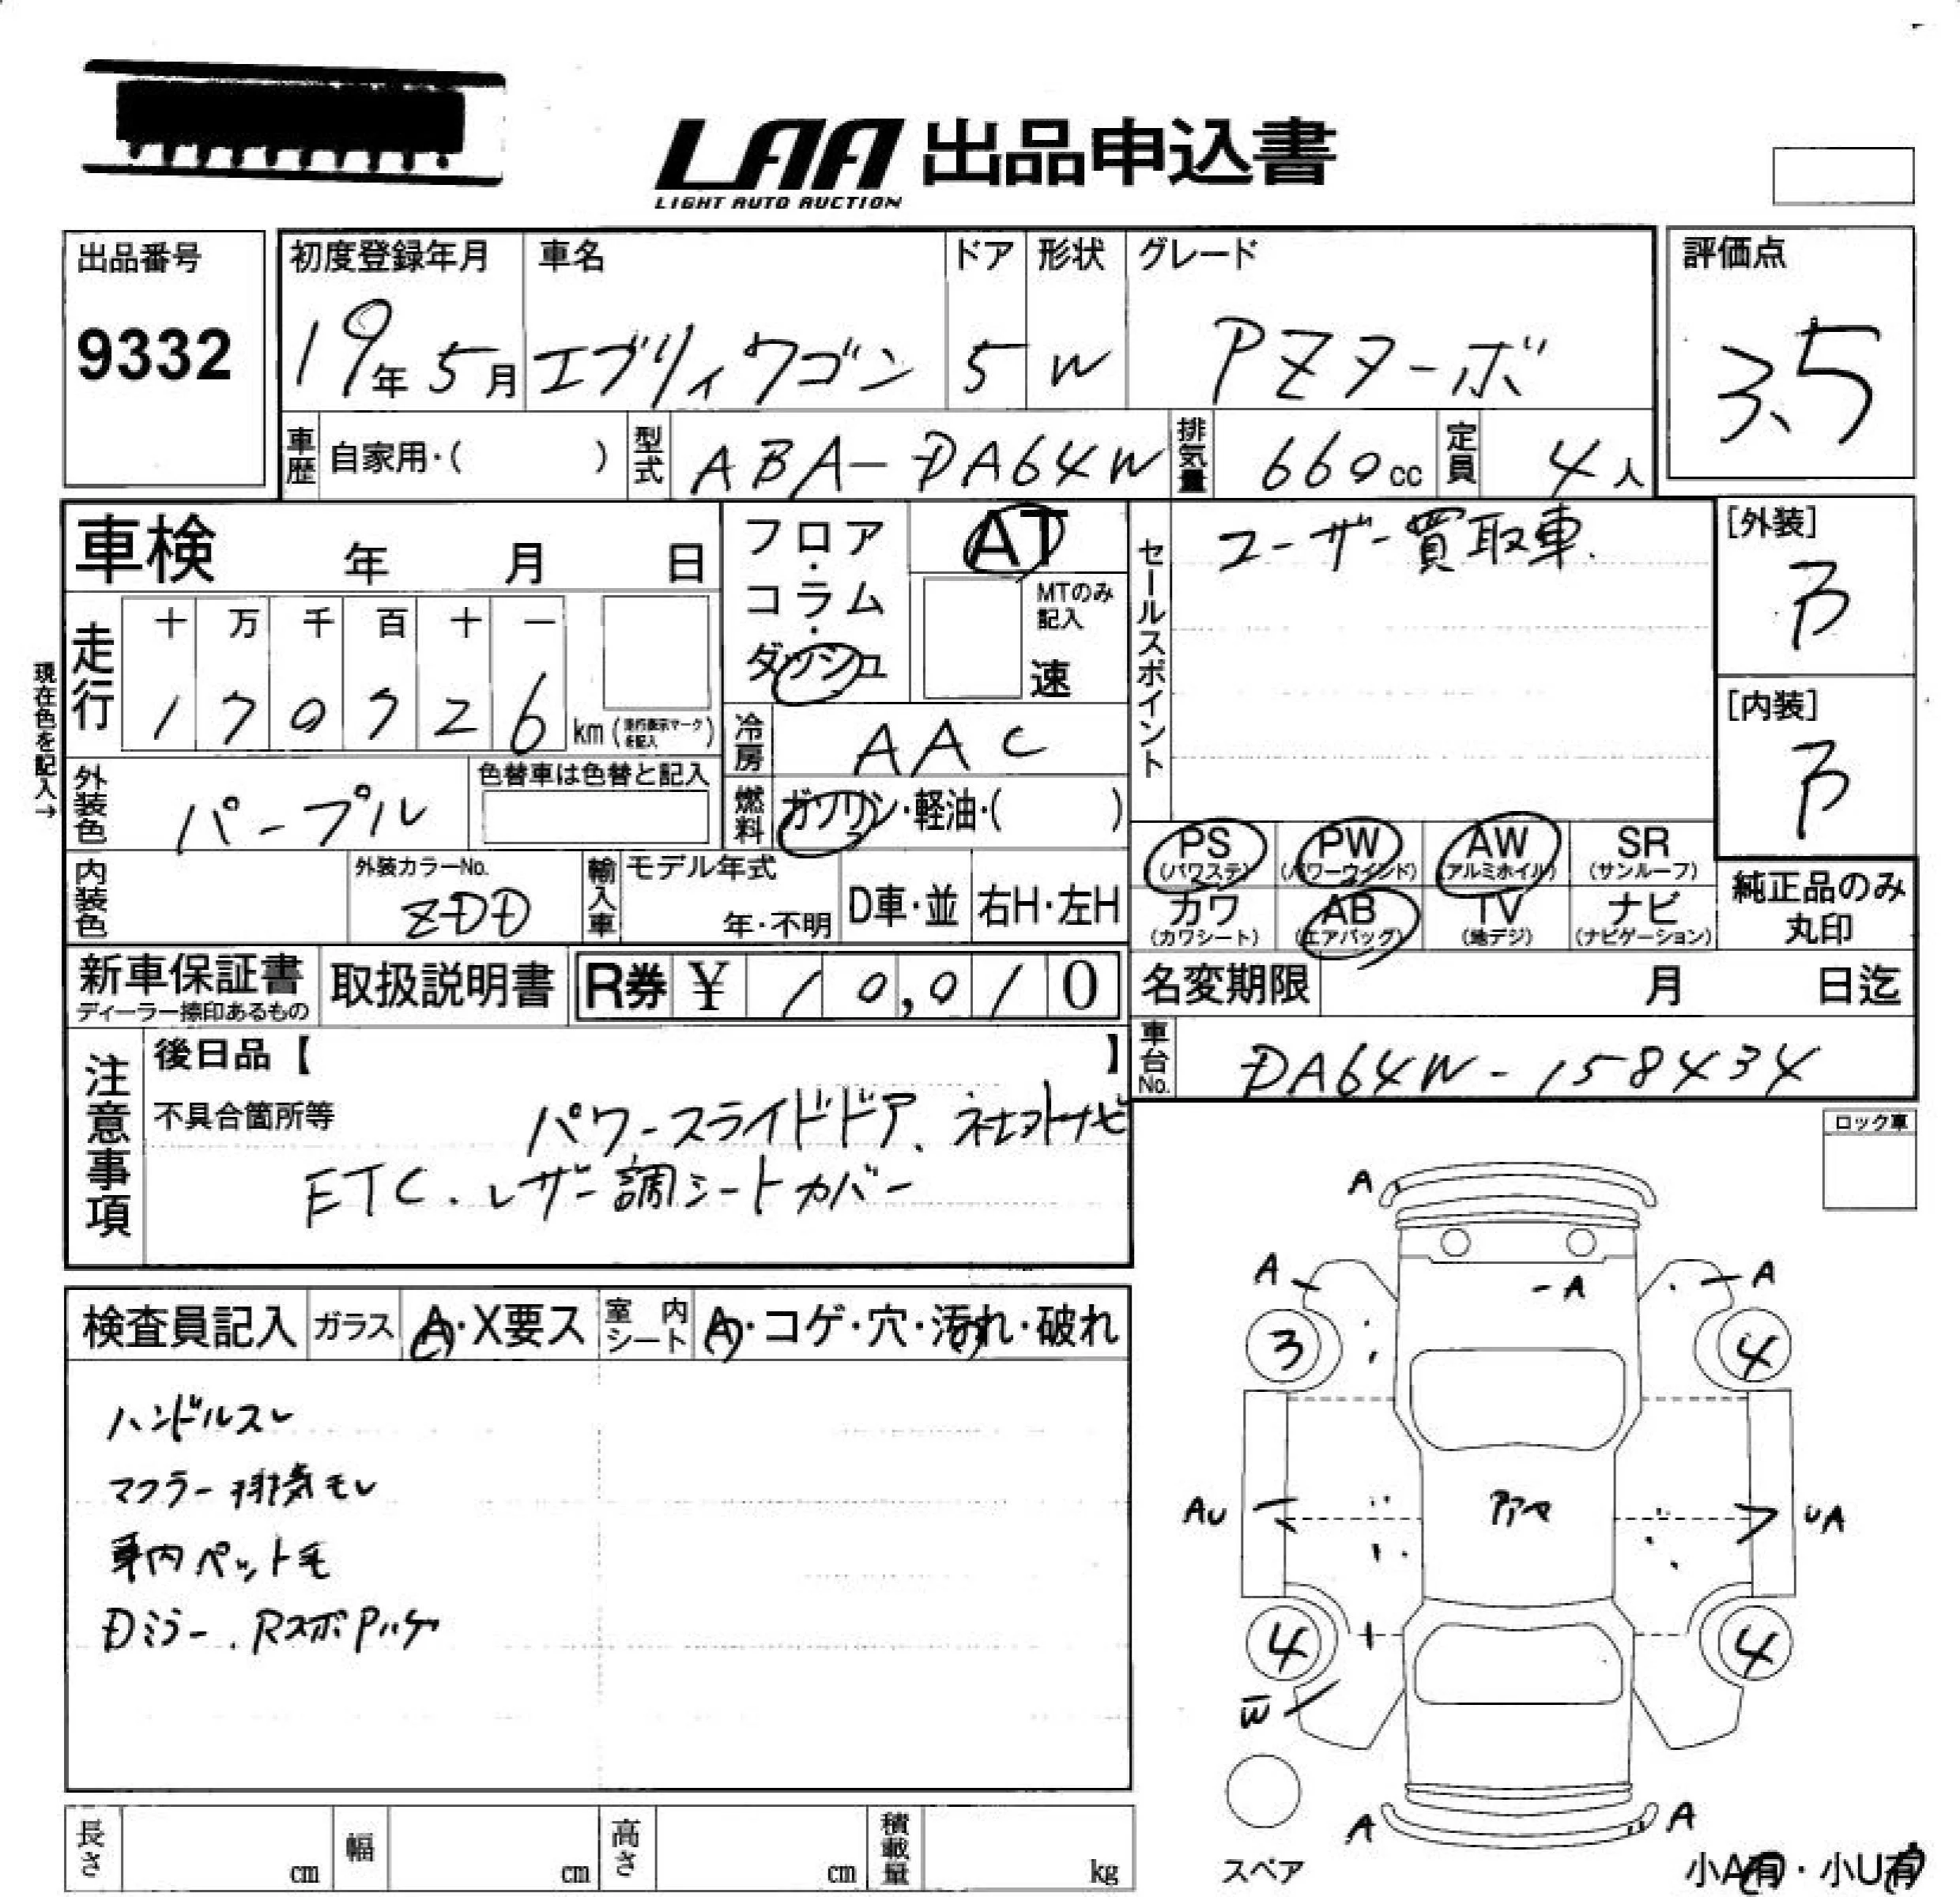 LAA 出品申込書
LIGHT AUTO AUCTION
出品番号
9332
初度登録年月 車名 ドア 形状 グレード
19年 5月 エブリィワゴン 5 W PZターボ
評価点
3.5
車歴 自家用・( ) 型式 ABA-DA64W 排気量 660cc 定員 4人
車検 年 月 日
フロア・コラム・ダッシュ
AT
MTのみ記入
速
セールスポイント
ユーザー買取車.
[外装]
[内装]
現在色を記入→
走行 十 万 千 百 十 一
170726 km (走行表示マークを記入)
冷房 AAC
外装色 パープル
色替車は色替と記入
燃料 ガソリン・軽油・( )
PS (パワステ) PW (パワーウインド) AW (アルミホイル) SR (サンルーフ)
カワ (カワシート) AB (エアバッグ) TV (地デジ) ナビ (ナビゲーション)
純正品のみ丸印
内装色
外装カラーNo.
ZDD
輸入車 モデル年式
年・不明 D車・並 右H・左H
新車保証書
ディーラー捺印あるもの
取扱説明書 R券 ¥ 10,010
名変期限 月 日迄
車台No. DA64W-158434
注意事項
後日品【 】
不具合箇所等 パワースライドドア、社外ナビ
ETC.レザー調シートカバー
ロック車
検査員記入 ガラス A・X要ス 室内シート A・コゲ・穴・汚れ・破れ
ハンドルスレ
マフラー排気モレ
車内ペット毛
Dミラー.RスポPハゲ
A
A A A
3 4
AU UA
4 4
W
A A
スペア
小A有・小U有
長さ cm 幅 cm 高さ cm 積載量 kg